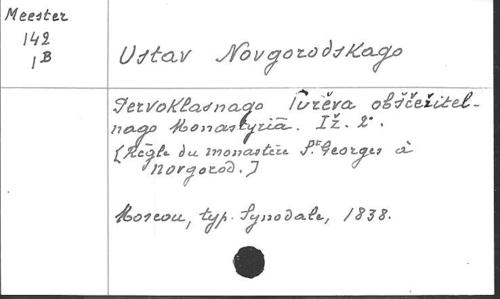 Meester
142
1B
Ustav Novgorodskago
Pervoklasnago Iurěva obščežitel-
nago Monastyriā. Iž. 2º.
[Règle du monastère St Georges à
Novgorod.]
Moscou, typ. Synodale, 1838.